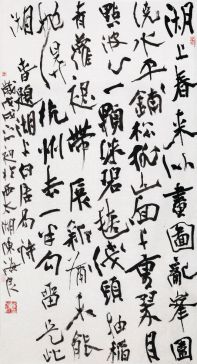 湖上春来似畫圖亂峯圍
繞水平鋪松排山面千重翠月
點波心一顆珠碧毯綫頭抽稻
青羅裙帶展新蒲未能
抛得杭州去一半勾留是此
湖 春題湖上白居易詩
歲戊戌於西太湖陳海良